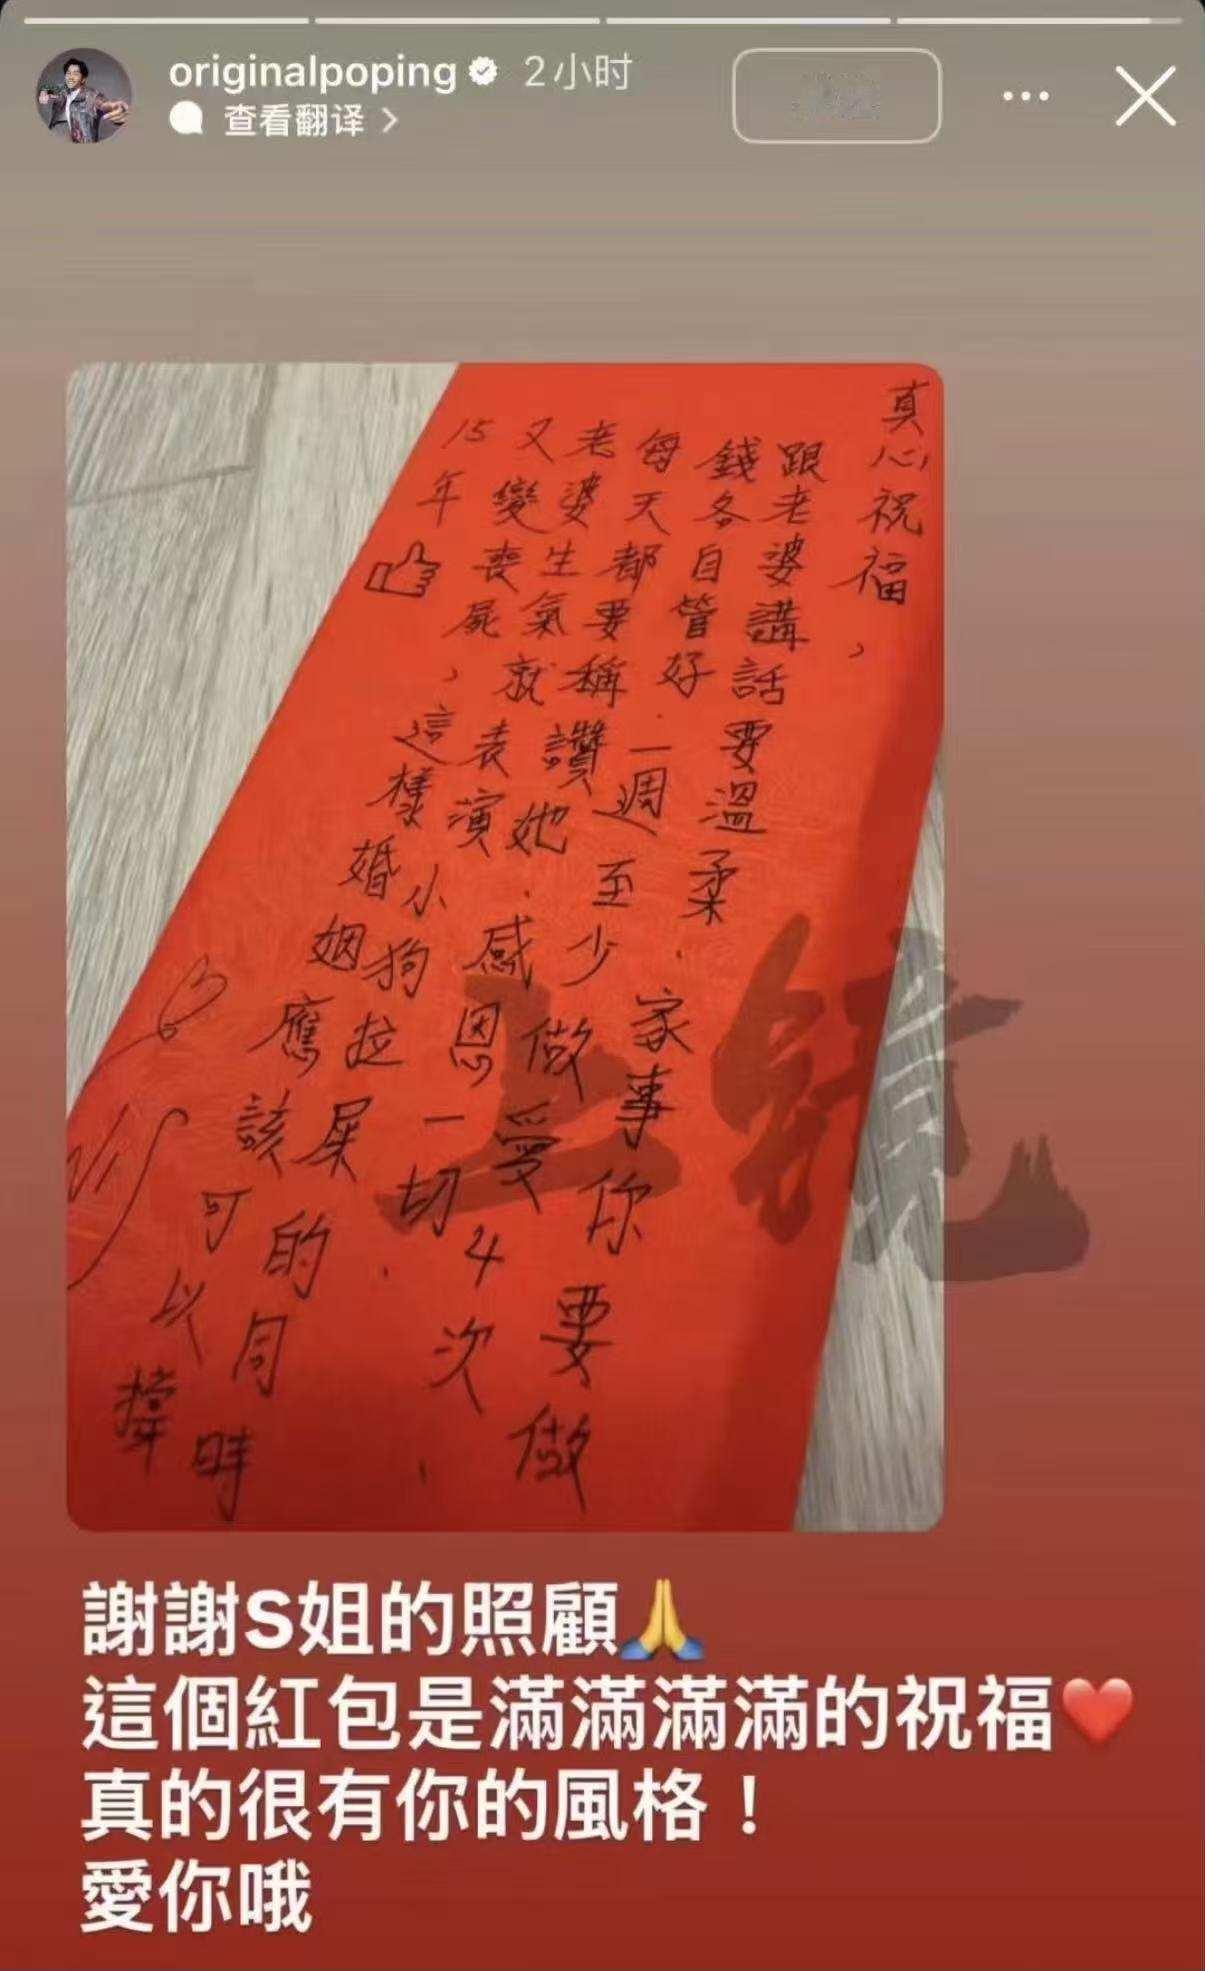 originalpoping 2小时
查看翻译
真心祝福，
跟老婆講話要溫柔．家事你要做
錢各自管好．一週至少做受4次、
每天都要稱讚她．感恩一切、
老婆生氣就表演小狗拉屎的同時
又變喪屍、這樣婚姻應該可以撐
15年
上鏡
謝謝S姐的照顧🙏
這個紅包是滿滿滿滿的祝福❤️
真的很有你的風格！
愛你哦